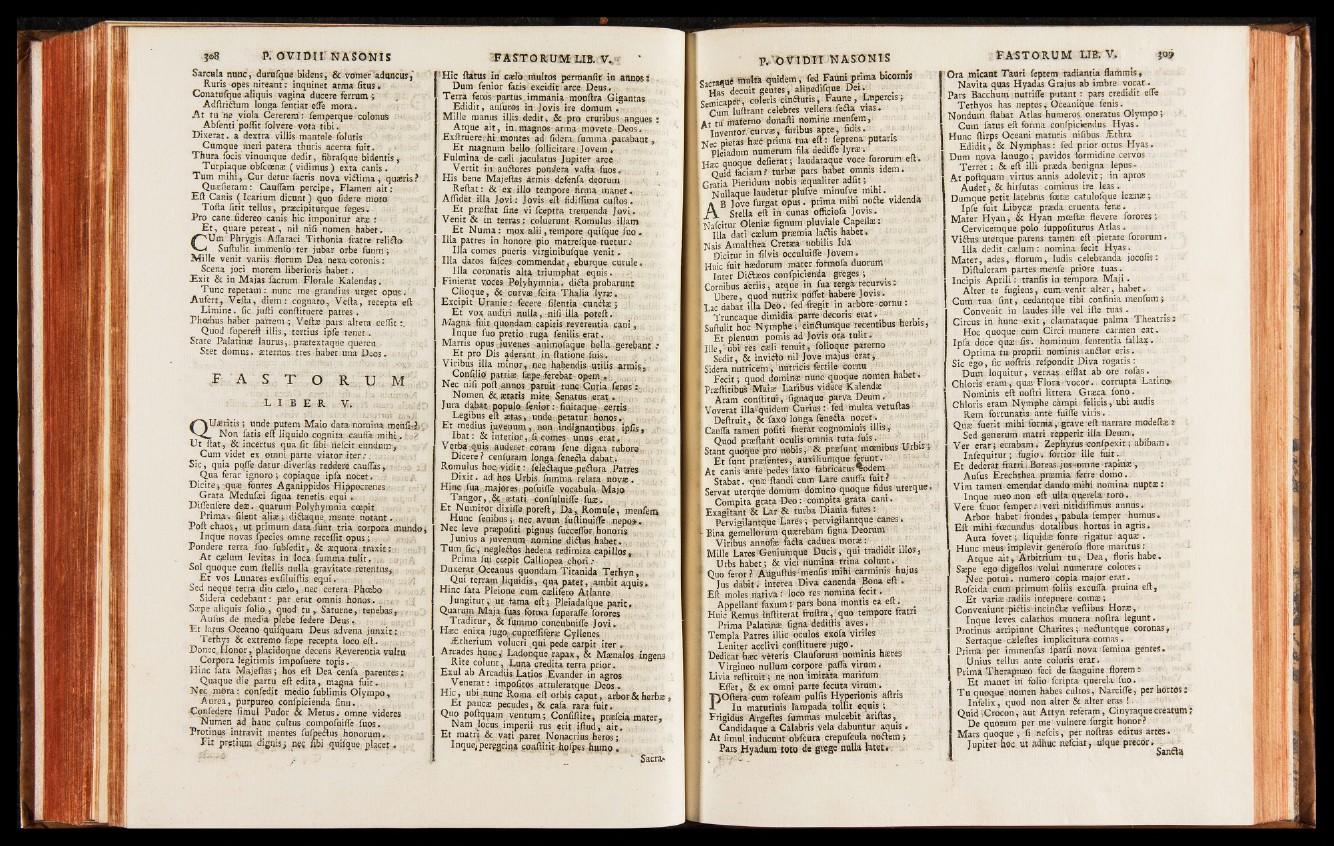 308 P. OVIDII NASONIS
Sarcula nunc, duruſque bidens, & vomer aduncus,
Ruris opes niteant: inquinet arma ſitus.
Conatuſque aliquis vagina ducere ferrum;
Adſtrictum longa ſentiat eſſe mora.
At tu ne viola Cererem: ſemperque colonus
Abſenti poſſit ſolvere vota tibi.
Dixerat. a dextra villis mantele ſolutis
Cumque meri patera thuris acerra fuit.
Thura focis vinumque dedit, fibraſque bidentis,
Turpiaque obſcœnæ (vidimus) exta canis.
Tum mihi, Cur detur ſacris nova victima, quæris?
Quæſieram: Cauſſam percipe, Flamen ait:
Eſt Canis (Icarium dicunt) quo ſidere moto
Toſta ſitit tellus, præcipiturque ſeges.
Pro cane ſidereo canis hic imponitur aræ:
Et, quare pereat, nil niſi nomen habet.
CUm Phrygis Aſſaraci Tithonia fratre relicto
Suſtulit immenſo ter jubar orbe ſuum;
Mille venit variis florum Dea nexa coronis:
Scena joci morem liberioris habet.
Exit & in Majas ſacrum Florale Kalendas.
Tunc repetam: nunc me grandius urget opus.
Aufert, Veſta, diem: cognato, Veſta, recepta eſt
Limine. ſic juſti conſtituere patres.
Phœbus habet partem; Veſtæ pars altera ceſſit:
Quod ſupereſt illis, tertius ipſe tenet.
State Palatinæ laurus, prætextaque quercu
Stet domus. æternos tres habet una Deos.
FASTORUM
LIBER V.
QUæritis; unde putem Maio data nomina menſi?
Non ſatis eſt liquido cognita cauſſa mihi.
Ut ſtat, & incertus qua ſit ſibi neſcit eundum,
Cum videt ex omni parte viator iter:
Sic, quia poſſe datur diverſas reddere cauſſas,
Qua ferar ignoro; copiaque ipſa nocet.
Dicite, quæ fontes Aganippidos Hippocrenes
Grata Meduſæi ſigna tenetis equi.
Diſſenſere deæ. quarum Polyhymnia cœpit
Prima. ſilent aliæ; dictaque mente notant.
Poſt chaos, ut primum data ſunt tria corpora mundo,
Inque novas ſpecies omne receſſit opus;
Pondere terra ſuo ſubſedit, & æquora traxit:
At cælum levitas in loca ſumma tulit.
Sol quoque cum ſtellis nulla gravitate retentus,
Et vos Lunares exſiluiſtis equi.
Sed neque terra diu cælo, nec cetera Phœbo
Sidera cedebant: par erat omnis honos.
Sæpe aliquis ſolio, quod tu, Saturne, tenebas,
Auſus de media plebe ſedere Deus.
Et latus Oceano quiſquam Deus advena junxit:
Tethys & extremo ſæpe recepta loco eſt.
Donec Honor, placidoque decens Reverentia vultu
Corpora legitimis impoſuere toris.
Hinc ſata Majeſtas; hos eſt Dea cenſa parentes:
Quaque die partu eſt edita, magna fuit.
Nec mora: conſedit medio ſublimis Olympo,
Aurea, purpureo conſpicienda ſinu.
Conſedere ſimul Pudor & Metus. omne videres
Numen ad hanc cultus compoſuiſſe ſuos.
Protinus intravit mentes ſuſpectus honorum.
Fit pretium dignis; nec ſibi quiſque placet.
FASTORUM LIB. V.
Hic ſtatus in cælo multos permanſit in annos:
Dum ſenior fatis excidit arce Deus.
Terra feros partus immania monſtra Gigantas
Edidit, auſuros in Jovis ire domum.
Mille manus illis dedit, & pro cruribus angues:
Atque ait, in magnos arma movete Deos.
Exſtruere hi montes ad ſidera ſumma parabant,
Et magnum bello ſollicitare Jovem.
Fulmina de cæli jaculatus Jupiter arce
Vertit in auctores pondera vaſta ſuos.
His bene Majeſtas armis defenſa deorum
Reſtat: & ex illo tempore firma manet.
Aſſidet illa Jovi: Jovis eſt fidiſſima cuſtos.
Et præſtat ſine vi ſceptra tremenda Jovi.
Venit & in terras: coluerunt Romulus illam
Et Numa: mox alii, tempore quiſque ſuo.
Illa patres in honore pio matreſque tuetur:
Illa comes pueris virginibuſque venit.
Illa datos faſces commendat, eburque curule.
Illa coronatis alta triumphat equis.
Finierat voces Polyhymnia. dicta probarunt
Clioque, & curvæ ſcita Thalia lyræ.
Excipit Uranie: fecere ſilentia cunctæ;
Et vox audiri nulla, niſi illa poteſt.
Magna fuit quondam capitis reverentia cani,
Inque ſuo pretio ruga ſenilis erat.
Martis opus juvenes animoſaque bella gerebant:
Et pro Dis aderant in ſtatione ſuis.
Viribus illa minor, nec habendis utilis armis,
Conſilio patriæ ſæpe ferebat opem.
Nec niſi poſt annos patuit tunc Curia ſeros:
Nomen & ætatis mite Senatus erat.
Jura dabat populo ſenior: finitaque certis
Legibus eſt ætas, unde petatur honos.
Et medius juvenum, non indignantibus ipſis,
Ibat: & interior, ſi comes unus erat.
Verba quis auderet coram ſene digna rubore
Dicere? cenſuram longa ſenecta dabat.
Romulus hoc vidit: ſelectaque pectora Patres
Dixit. ad hos Urbis ſumma relata novæ.
Hinc ſua majores poſuiſſe vocabula Majo
Tangor, & ætati conſuluiſſe ſuæ.
Et Numitor dixiſſe poteſt, Da, Romule, menſem
Hunc ſenibus; nec avum ſuſtinuiſſe nepos.
Nec leve præpoſiti pignus ſucceſſor honoris
Junius a juvenum nomine dictus habet.
Tum ſic, neglectos hedera redimita capillos,
Prima ſui cœpit Calliopea chori:
Duxerat Oceanus quondam Titanida Tethyn,
Qui terram liquidis, qua patet, ambit aquis.
Hinc ſata Pleione cum cælifero Atlante
Jungitur, ut fama eſt; Pleiadaſque parit.
Quarum Maja ſuas forma ſuperaſſe ſorores
Traditur, & ſummo concubuiſſe Jovi.
Hæc enixa jugo cupreſſiferæ Cyllenes
Ætherium volucri qui pede carpit iter.
Arcades hunc, Ladonque rapax, & Mænalos ingens
Rite colunt, Luna credita terra prior.
Exul ab Arcadiis Latios Evander in agros
Venerat: impoſitos attuleratque Deos.
Hic, ubi nunc Roma eſt orbis caput, arbor & herbæ,
Et paucæ pecudes, & caſa rara fuit.
Quo poſtquam ventum; Conſiſtite, præſcia mater,
Nam locus imperii rus erit iſtud, ait.
Et matri & vati paret Nonacrius heros;
Inque peregrina conſtitit hoſpes humo.
Sacra-
P. OVIDII NASONIS
Sacraque multa quidem, ſed Fauni prima bicornis
Has decuit gentes, alipedisque Dei.
Semicaper, coleris cinctutis, Faune, Lupercis;
Cum luſtrant celebres vellera ſecta vias.
At tu materno donaſti nomine menſem,
Inventor curvæ, furibus apte, fidis.
Nec pietas hæc prima tua eſt: ſeptena putaris
Pleiadum numerum fila dediſſe lyræ.
Hæc quoque deſierat; laudataque voce ſororum eſt.
Quid faciam? turbæ pars habet omnis idem.
Gratia Pieridum nobis æqualiter adſit;
Nullaque laudetur pluſve minuſve mihi.
AB Jove ſurgat opus. prima mihi nocte videnda
Stella eſt in cunas officioſa Jovis.
Naſcitur Oleniæ ſignum pluviale Capellæ:
Illa dati cælum præmia lactis habet.
Nais Amalthea Cretæa nobilis Ida
Dicitur in ſilvis occuluiſſe Jovem.
Huic fuit hædorum mater formoſa duorum
Inter Dictæos conſpicienda greges;
Cornibus aeriis, atque in ſua terga recurvis:
Ubere, quod nutrix poſſet habere Jovis.
Lac dabat illa Deo. ſed fregit in arbore cornu:
Truncaque dimidia parte decoris erat.
Suſtulit hoc Nymphe; cinctumque recentibus herbis,
Et plenum pomis ad Jovis ora tulit.
Ille, ubi res cæli tenuit, ſolioque paterno
Sedit, & invicto nil Jove majus erat,
Sidera nutricem, nutricis fertile cornu
Fecit; quod dominæ nunc quoque nomen habet.
Præſtitibus Maiæ Laribus videre Kalendæ
Aram conſtitui, ſignaque parva Deum.
Voverat illa quidem Curius: ſed multa vetuſtas
Deſtruit, & ſaxo longa ſenecta nocet.
Cauſſa tamen poſiti fuerat cognominis illis,
Quod præſtant oculis omnia tuta ſuis.
Stant quoque pro nobis, & præſunt mœnibus Urbis;
Et ſunt præſentes, auxiliumque ferunt.
At canis ante pedes ſaxo fabricatus eodem
Stabat. quæ ſtandi cum Lare cauſſa fuit?
Servat uterque domum domino quoque fidus uterque.
Compita grata Deo: compita grata cani.
Exagitant & Lar & turba Diania fures:
Pervigilantque Lares; pervigilantque canes.
Bina gemellorum quærebam ſigna Deorum
Viribus annoſæ facta caduca moræ:
Mille Lares Geniumque Ducis, qui tradidit illos,
Urbs habet; & vici numina trina colunt.
Quo feror? Auguſtus menſis mihi carminis hujus
Jus dabit. interea Diva canenda Bona eſt.
Eſt moles nativa: loco res nomina fecit.
Appellant ſaxum: pars bona montis ea eſt.
Huic Remus inſtiterat fruſtra, quo tempore fratri
Prima Palatinæ ſigna dediſtis aves.
Templa Patres illic oculos exoſa viriles
Leniter acclivi conſtituere jugo.
Dedicat hæc veteris Clauſorum nominis hæres
Virgineo nullum corpore paſſa virum.
Livia reſtituit; ne non imitata maritum
Eſſet, & ex omni parte ſecuta virum.
POſtera cum roſeam pulſis Hyperionis aſtris
In matutinis lampada tollit equis;
Frigidus Argeſtes ſummas mulcebit ariſtas,
Candidaque a Calabris vela dabuntur aquis.
At ſimul inducunt obſcura crepuſcula noctem;
Pars Hyadum toto de grege nulla latet.
FASTORUM LIB. V. 309
Ora micant Tauri ſeptem radiantia flammis,
Navita quas Hyadas Grajus ab imbre vocat.
Pars Bacchum nutriſſe putant: pars credidit eſſe
Tethyos has neptes, Oceanique ſenis.
Nondum ſtabat Atlas humeros oneratus Olympo;
Cum ſatus eſt forma conſpiciendus Hyas.
Hunc ſtirps Oceani maturis nifibus Æthra
Edidit, & Nymphas: ſed prior ortus Hyas.
Dum nova lanugo; pavidos formidine cervos
Terret: & eſt illi præda benigna lepus.
At poſtquam virtus annis adolevit; in apros
Audet, & hirſutas cominus ire leas.
Dumque petit latebras fœtæ catuloſque leænæ;
Ipſe fuit Libycæ præda cruenta feræ.
Mater Hyan, & Hyan mœſtæ flevere ſorores;
Cervicemque polo ſuppoſiturus Atlas.
Victus uterque parens tamen eſt pietate ſororum.
Illa dedit cælum: nomina fecit Hyas.
Mater, ades, florum, ludis celebranda jocoſis:
Diſtuleram partes menſe priore tuas.
Incipis Aprili: tranſis in tempora Maji.
Alter te fugiens, cum venit alter, habet.
Cum tua ſint, cedantque tibi confinia menſum;
Convenit in laudes ille vel iſte tuas.
Circus in hunc exit, clamataque palma Theatris:
Hoc quoque cum Circi munere carmen eat.
Ipſa doce quæ ſis. hominum ſententia fallax.
Optima tu proprii nominis auctor eris.
Sic ego, ſic noſtris reſpondit Diva rogatis:
Dum loquitur, vernas efflat ab ore roſas.
Chloris eram, quæ Flora vocor. corrupta Latino
Nominis eſt noſtri littera Græca ſono.
Chloris eram Nymphe campi felicis, ubi audis
Rem fortunatis ante fuiſſe viris.
Quæ fuerit mihi forma, grave eſt narrare modeſtæ:
Sed generum matri repperit illa Deum.
Ver erat; errabam. Zephyrus conſpexit; abibam.
Inſequitur; fugio. fortior ille fuit.
Et dederat fratri Boreas jus omne rapinæ,
Auſus Erechthea præmia ferre domo.
Vim tamen emendat dando mihi nomina nuptæ:
Inque meo non eſt ulla querela toro.
Vere fruor ſemper: veri nitidiſſimus annus.
Arbor habet frondes, pabula ſemper humus.
Eſt mihi fœcundus dotalibus hortus in agris.
Aura fovet; liquidæ fonte rigatur aquæ.
Hunc meus implevit generoſo flore maritus:
Atque ait, Arbitrium tu, Dea, floris habe.
Sæpe ego digeſtos volui numerare colores;
Nec potui. numero copia major erat.
Roſcida cum primum foliis excuſſa pruina eſt,
Et variæ radiis intepuere comæ;
Conveniunt pictis incinctæ veſtibus Horæ,
Inque leves calathos munera noſtra legunt.
Protinus arripiunt Charites; nectuntque coronas,
Sertaque cæleſtes implicitura comas.
Prima per immenſas ſparſi nova ſemina gentes.
Unius tellus ante coloris erat.
Prima Therapnæo feci de ſanguine florem:
Et manet in folio ſcripta querela ſuo.
Tu quoque nomen habes cultos, Narciſſe, per hortos:
Infelix, quod non alter & alter eras!
Quid Crocon, aut Attyn referam, Cinyraque creatum;
De quorum per me vulnere ſurgit honor?
Mars quoque, ſi neſcis, per noſtras editus artes.
Jupiter hoc ut adhuc neſciat, uſque precor.
Sancta